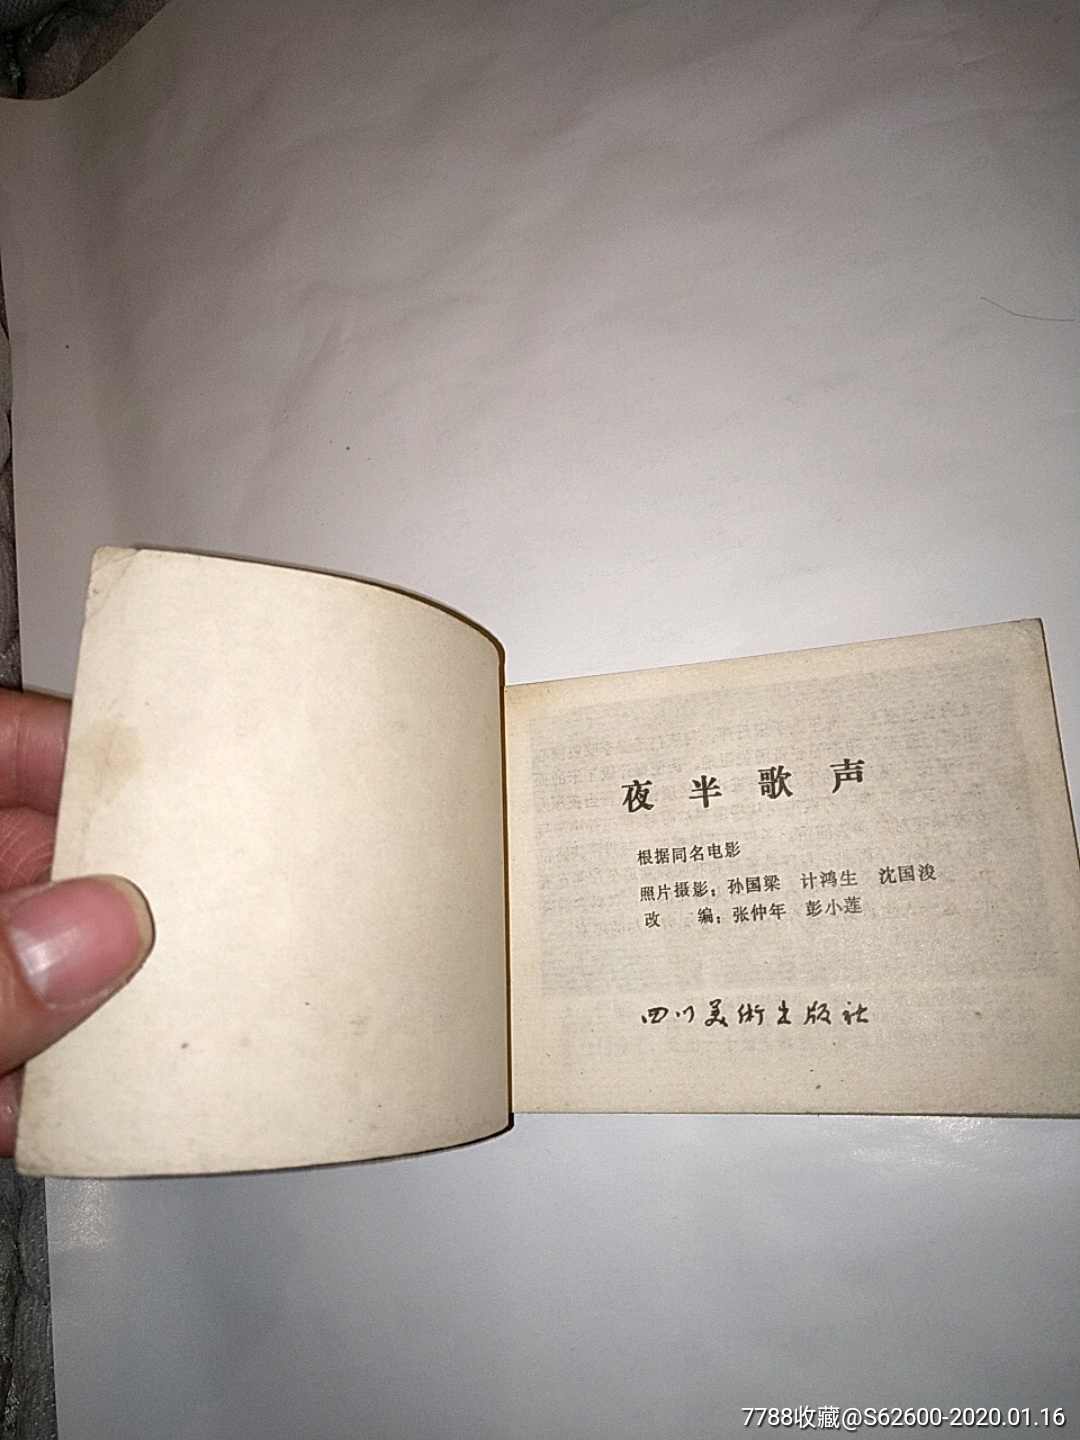 夜半歌声
根据同名电影
照片摄影：孙国梁 计鸿生 沈国浚
改 编：张仲年 彭小莲
四川美術出版社
7788收藏@S62600-2020.01.16